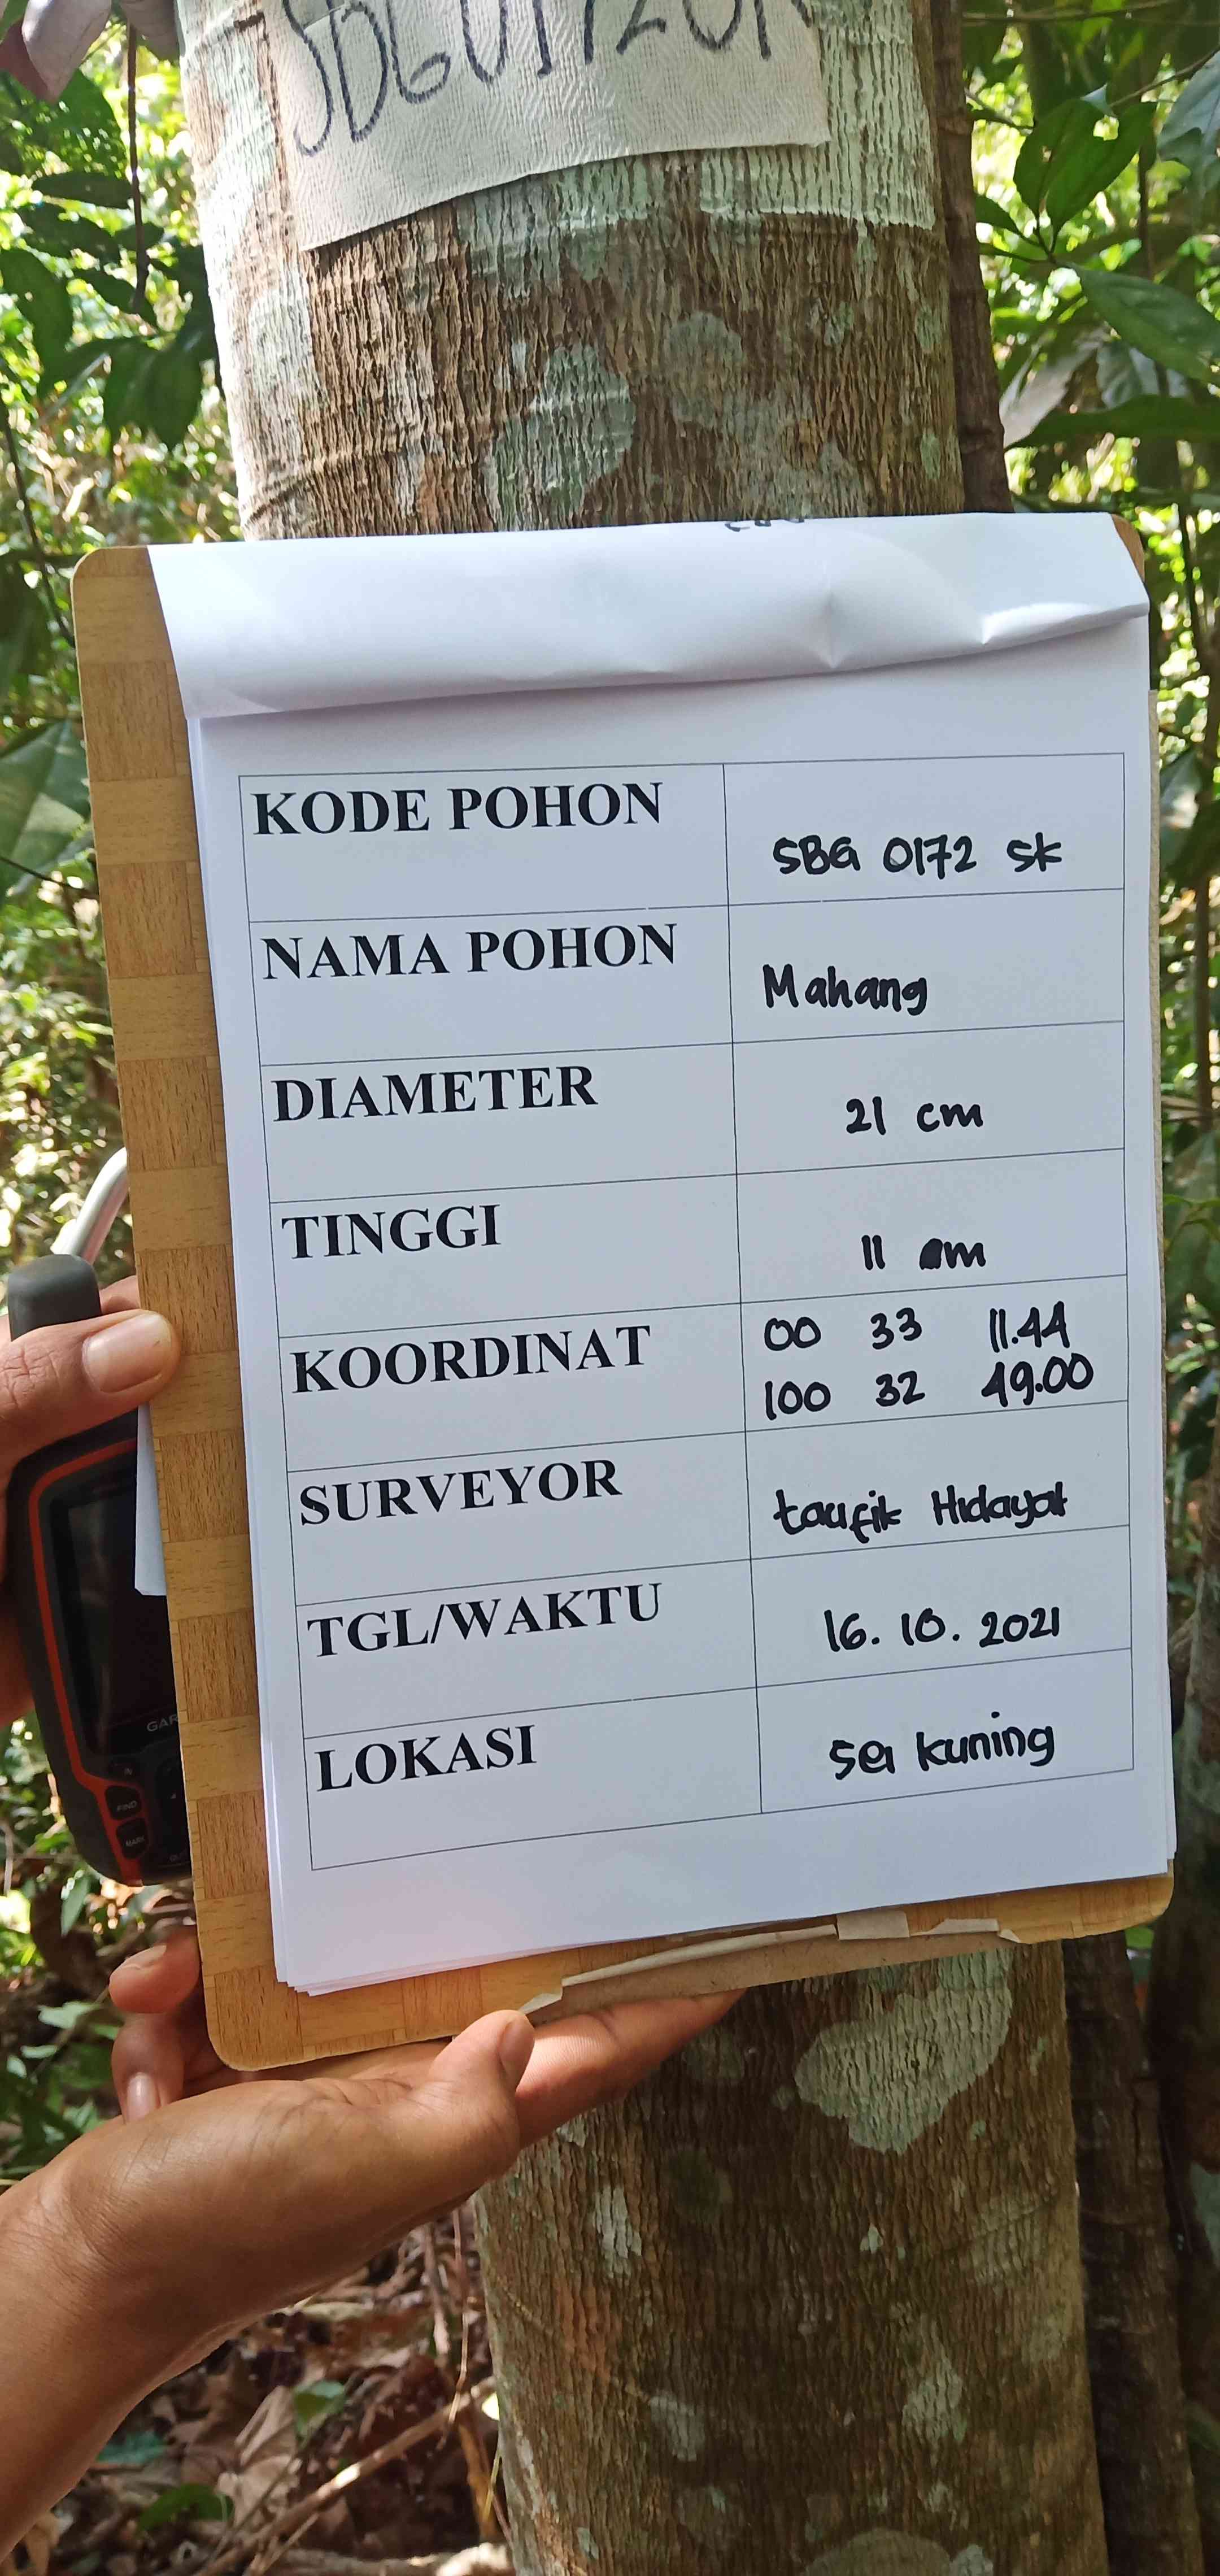 SBG0172SK
KODE POHON SBG 0172 SK
NAMA POHON Mahang
DIAMETER 21 cm
TINGGI 11 m
KOORDINAT 00 33 11.44
100 32 49.00
SURVEYOR taufik Hidayat
TGL/WAKTU 16.10.2021
LOKASI Sei kuning
FIND
MARK